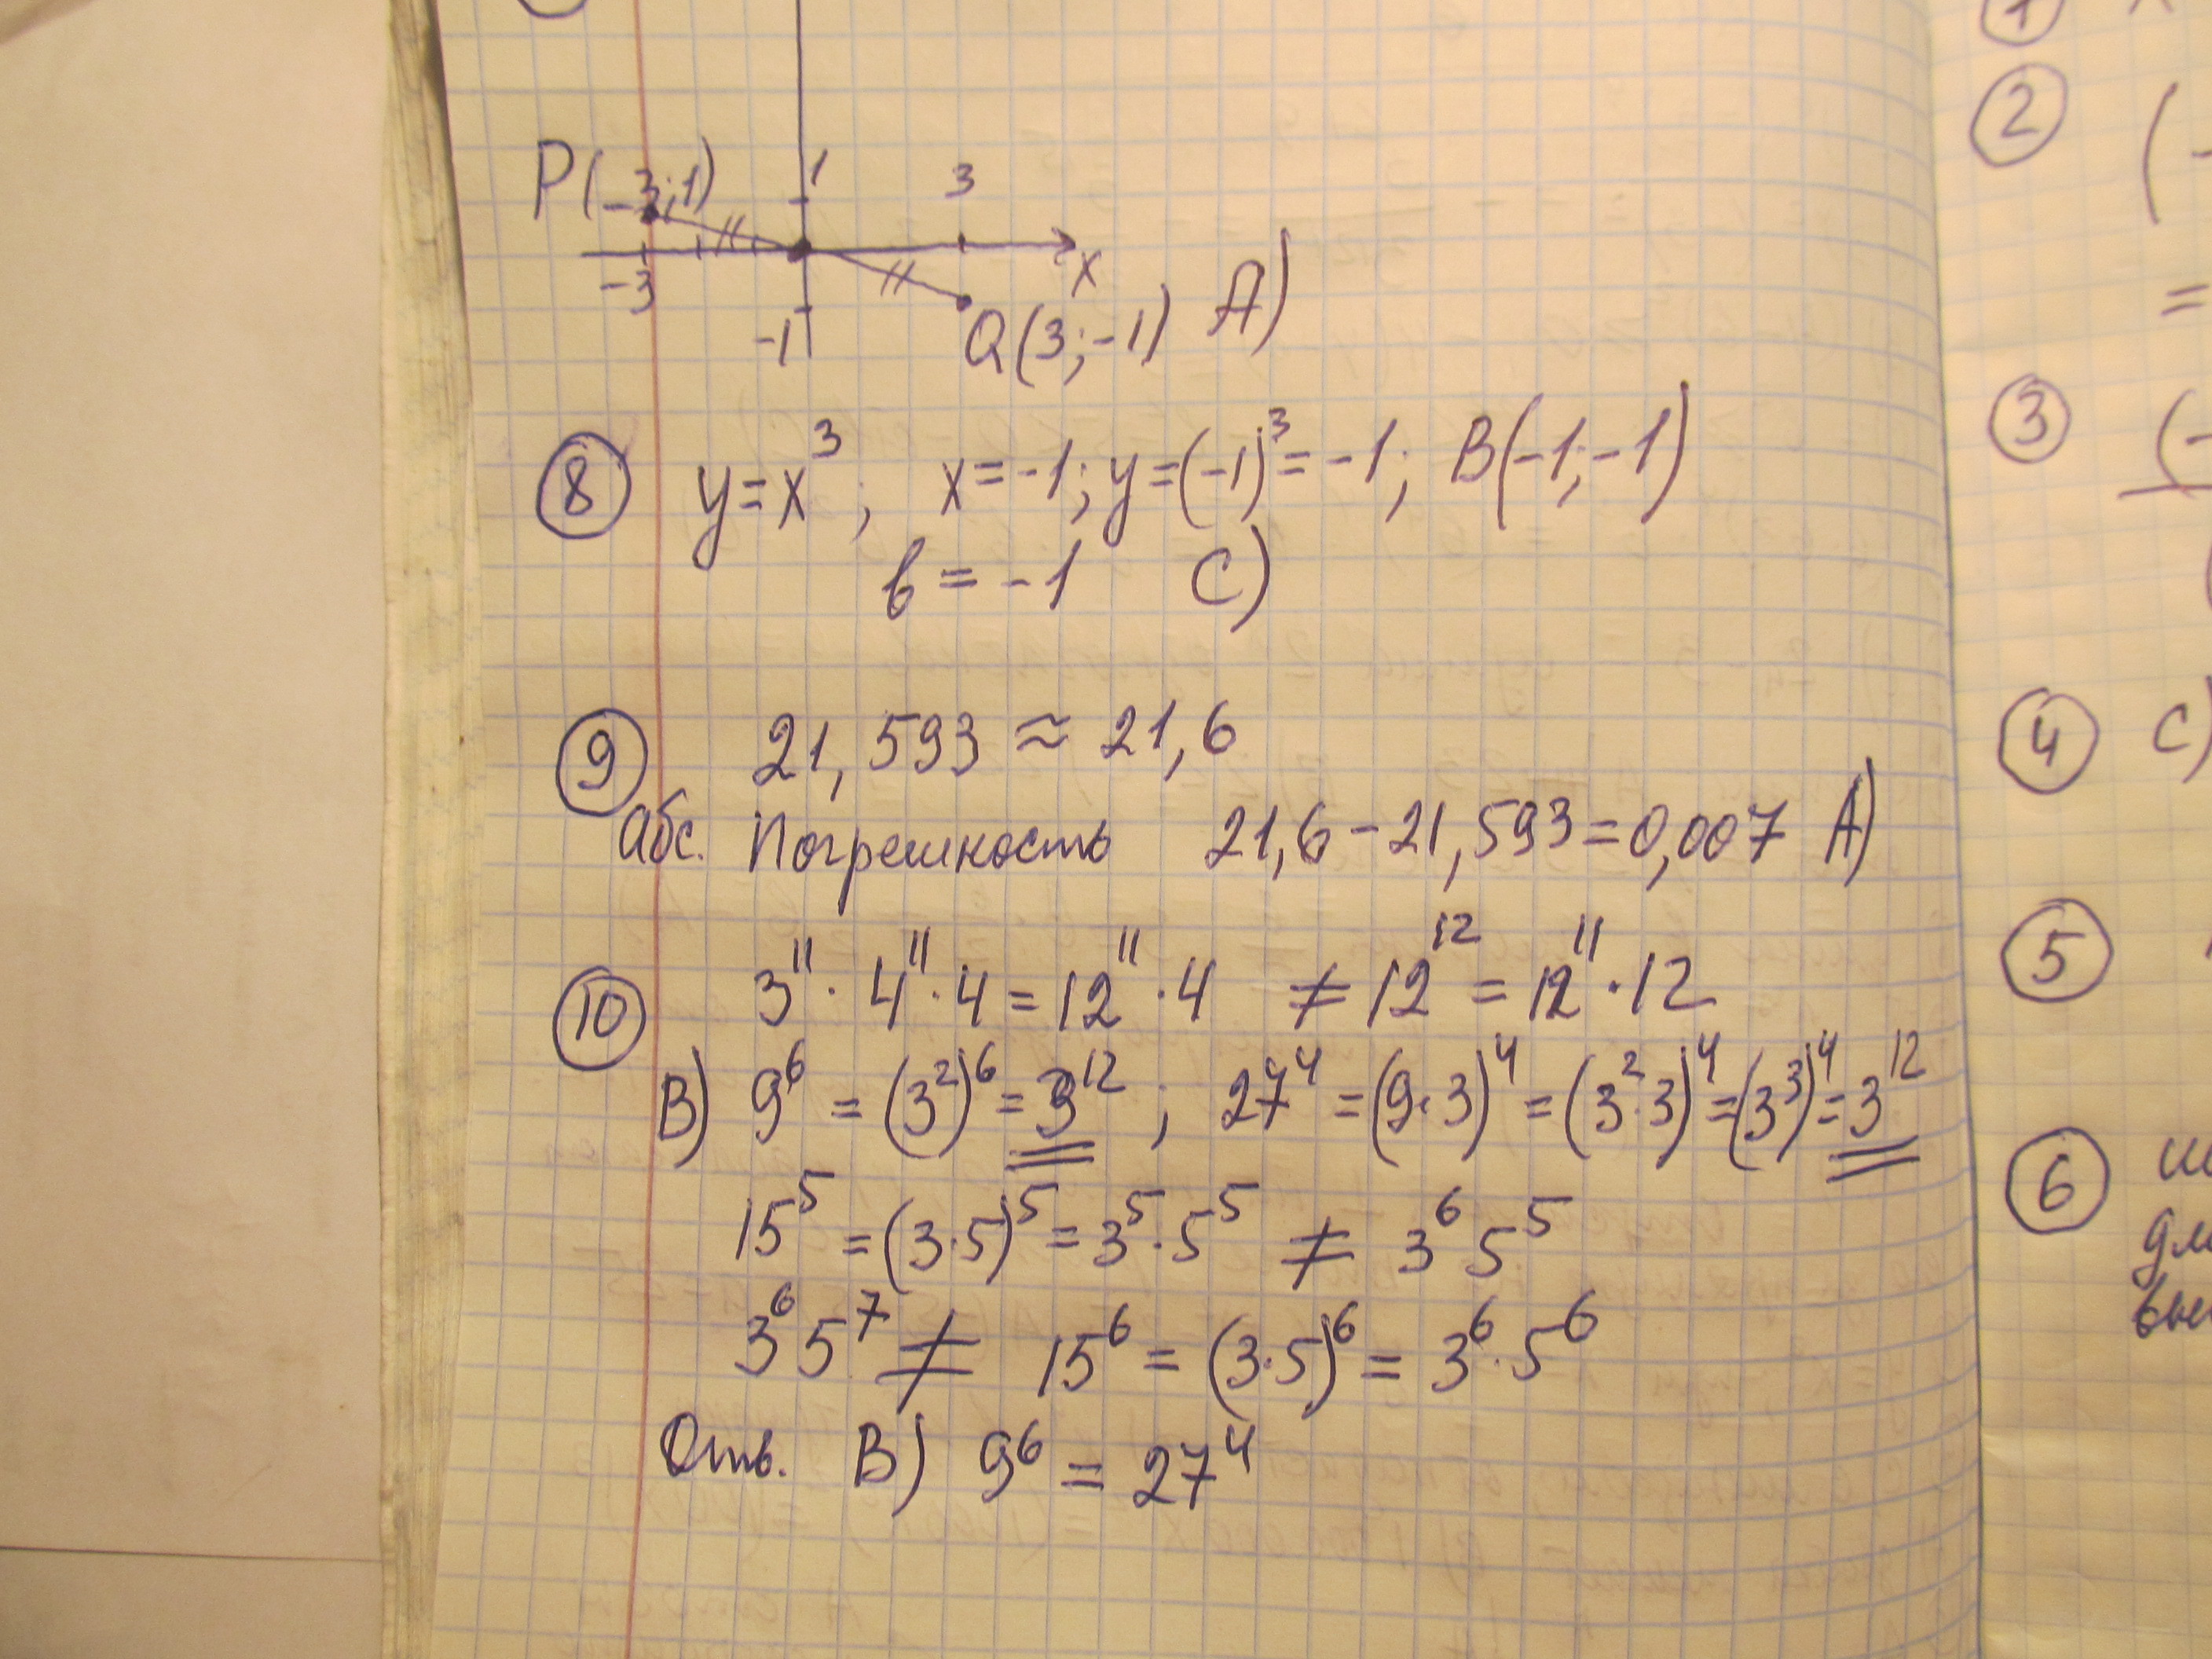 P(-3;1) 1 3
-3 x
-1 Q(3;-1) A)
8 y=x³; x=-1; y=(-1)³=-1; B(-1;-1)
b=-1 C)
9 21,593≈21,6
Абс. Погрешность 21,6-21,593=0,007 A)
10 3¹¹·4¹¹·4=12¹¹·4 ≠12¹²=12¹¹·12
B) 9⁶=(3²)⁶=3¹²; 27⁴=(9·3)⁴=(3²·3)⁴=(3³)⁴=3¹²
15⁵=(3·5)⁵=3⁵·5⁵ ≠ 3⁶5⁵
3⁶5⁷ ≠ 15⁶=(3·5)⁶=3⁶·5⁶
Отв. B) 9⁶=27⁴
2 (-
=
3 (-
4 C)
5
6